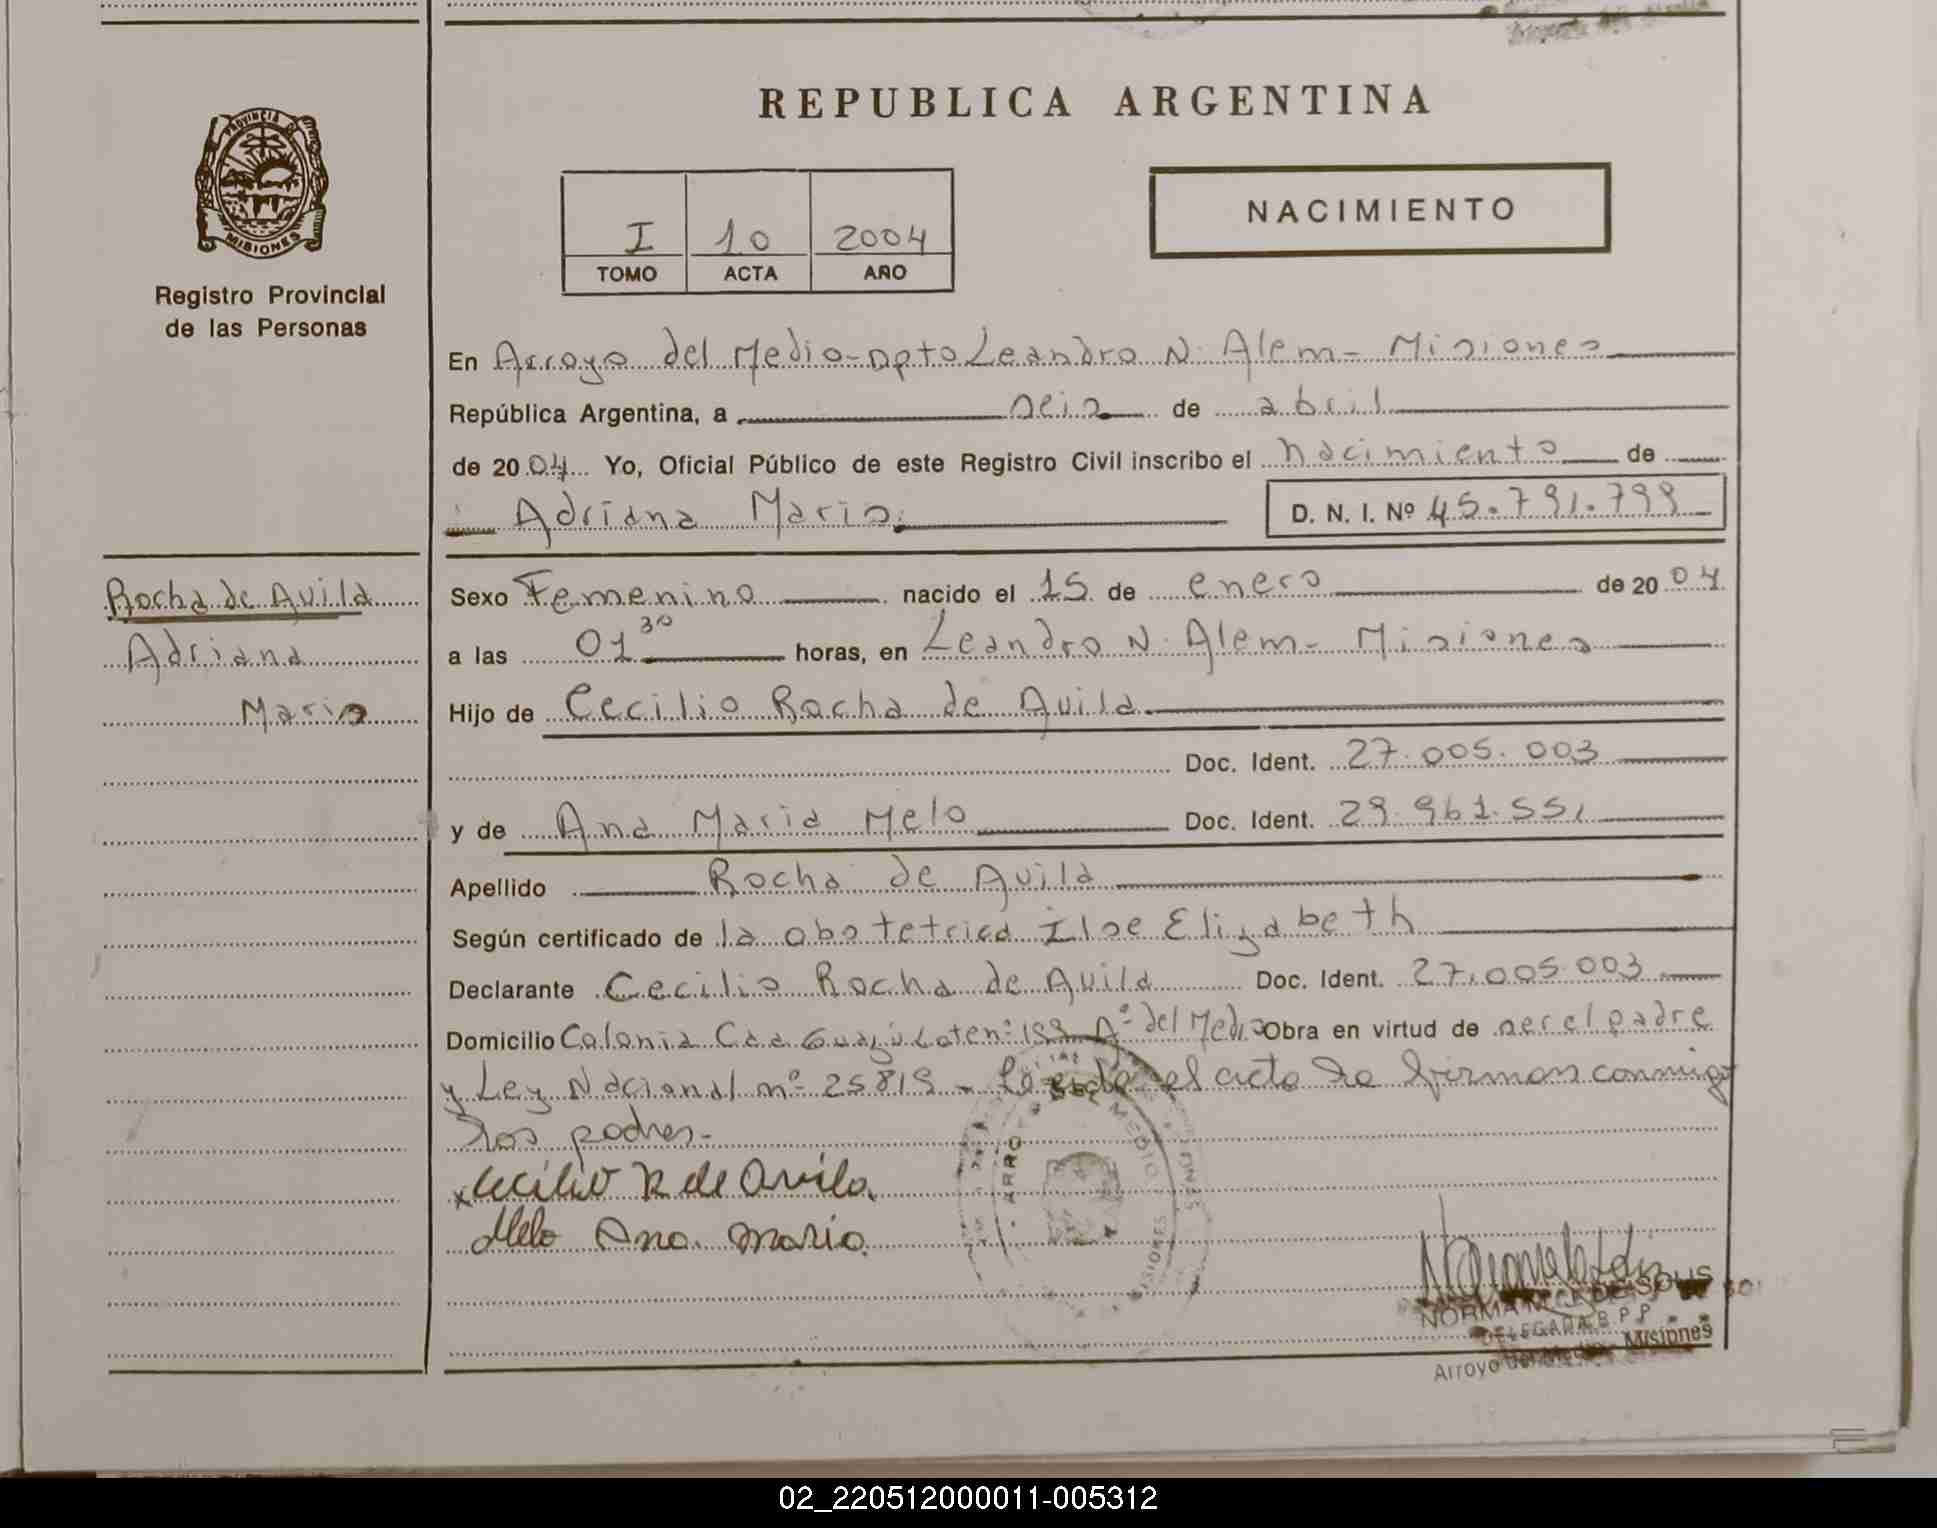 REPUBLICA ARGENTINA
PROVINCIA DE
MISIONES
Registro Provincial
de las Personas
I 10 2004
TOMO ACTA AÑO
NACIMIENTO
En Arroyo del Medio-Dpto Leandro N. Alem- Misiones
República Argentina, a seis de abril
de 2004 Yo, Oficial Público de este Registro Civil inscribo el nacimiento de
Adriana Maria D. N. I. Nº 45.791.799
Rocha de Avila
Adriana
Maria
Sexo Femenino nacido el 15 de enero de 2004
a las 01 30 horas, en Leandro N. Alem- Misiones
Hijo de Cecilio Rocha de Avila
Doc. Ident. 27.005.003
y de Ana Maria Melo Doc. Ident. 29.961.551
Apellido Rocha de Avila
Según certificado de la obstetrica Ilse Elizabeth
Declarante Cecilio Rocha de Avila Doc. Ident. 27.005.003
Domicilio Colonia Caa Guazú Lote nº 199 Aº del Medio Obra en virtud de ser el padre
y Ley Nacional nº 25819 - Leída el acta la firman conmigo
los padres.-
x Cecilio R de Avila
Melo Ana Maria
ARROYO DEL MEDIO
MISIONES
NORMA DE SOLIS
DELEGADA R P P
Arroyo del Medio Misiones
02_220512000011-005312